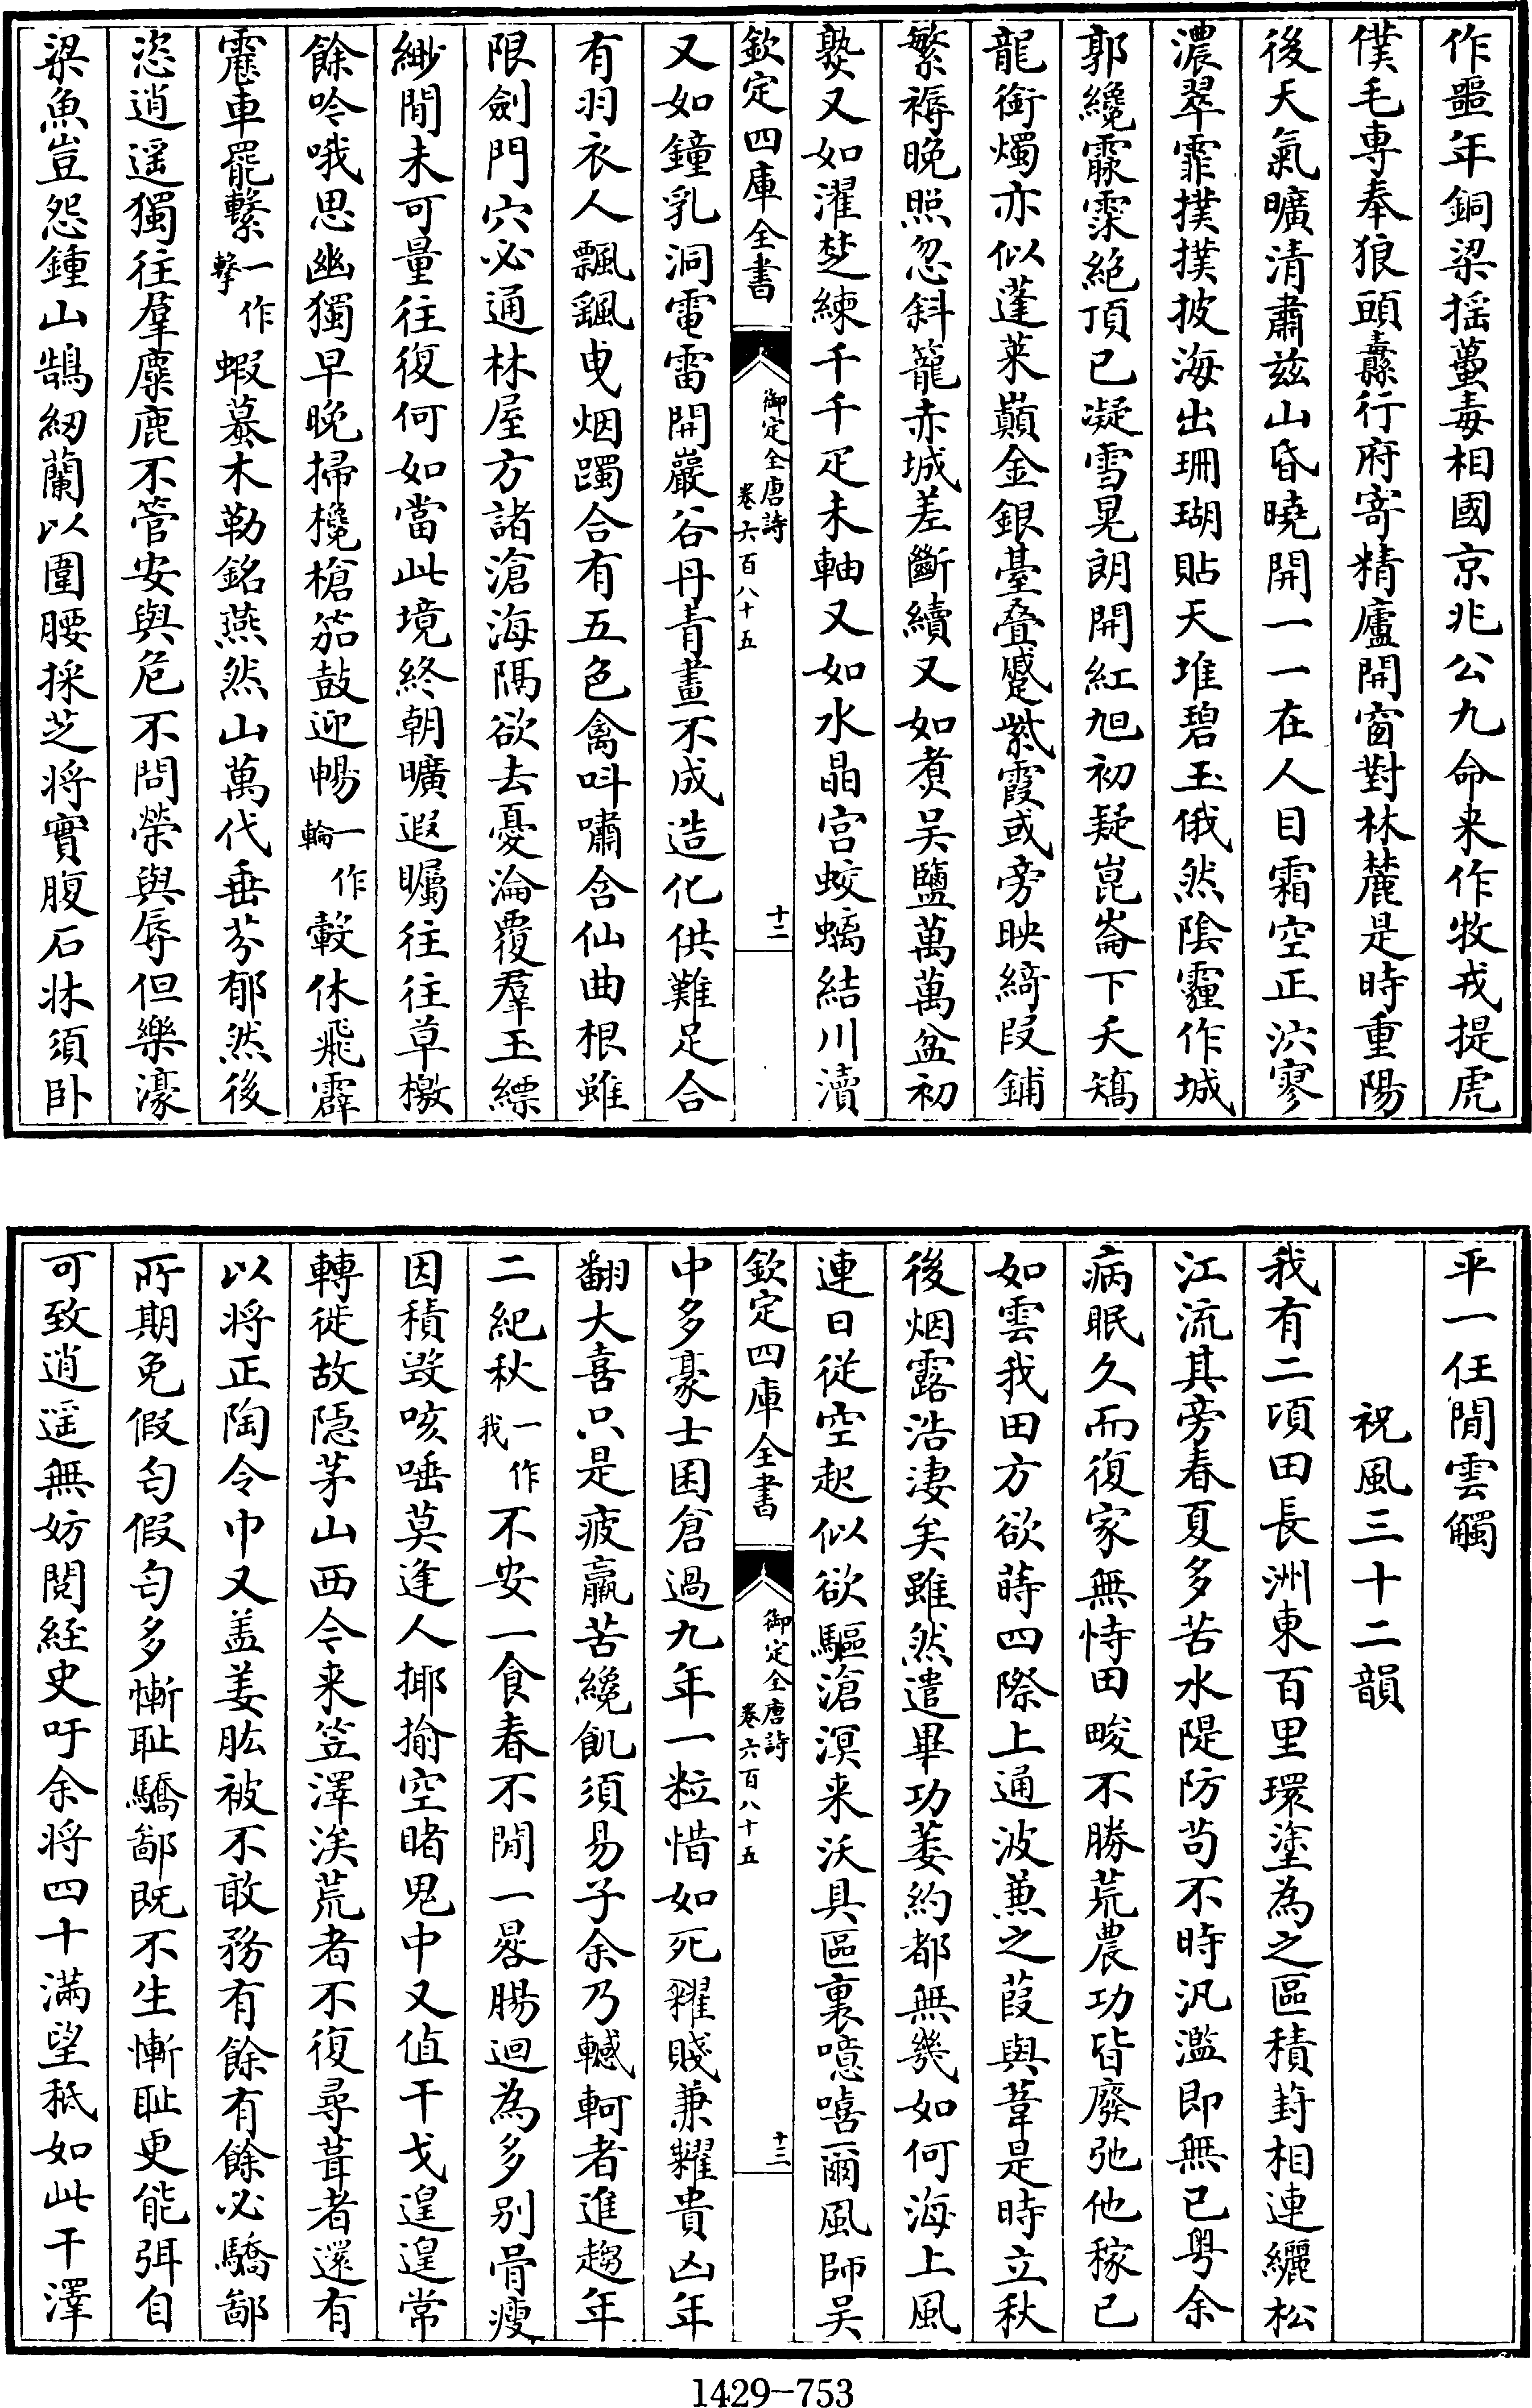 作噩年銅梁揺蠆毒相國京兆公九命来作牧戎提虎
僕毛専奉狼頭纛行府寄精廬開窗對林麓是時重陽
後天氣曠清肅兹山昏曉開一一在人目霜空正泬寥
濃翠霏撲撲披海出珊瑚貼天堆碧玉俄然隂霾作城
郭纔霢霂絶頂已凝雪晃朗開紅旭初疑崑崙下夭矯
龍銜燭亦似蓬萊巔金銀臺叠蹙紫霞或旁映綺段鋪
繁褥晚照忽斜籠赤城差斷續又如煑吴鹽萬萬盆初
熟又如濯楚練千千疋未軸又如水晶宫蛟螭結川瀆
欽定四庫全書
御定全唐詩
卷六百八十五
十二
又如鐘乳洞電雷開巖谷丹青畫不成造化供難足合
有羽衣人飄颻曳烟躅合有五色禽叫嘯含仙曲根雖
限劍門穴必通林屋方諸滄海隅欲去憂淪覆羣玉縹
緲間未可量往復何如當此境終朝曠遐矚往往草檄
餘吟哦思幽獨早晚掃欃槍笳鼓迎暢一作輪轂休飛霹
靂車罷繫一作擊蝦蟇木勒銘燕然山萬代垂芬郁然後
恣逍遥獨往羣麋鹿不管安與危不問榮與辱但樂濠
梁魚豈怨鍾山鵠紉蘭以圍腰採芝将實腹石牀須卧
平一任閒雲觸
祝風三十二韻
我有二頃田長洲東百里環塗為之區積葑相連纚松
江流其旁春夏多苦水隄防茍不時汎濫即無已粤余
病眠久而復家無恃田畯不勝荒農功皆廢弛他稼已
如雲我田方欲蒔四際上通波兼之葭與葦是時立秋
後烟露浩淒矣雖然遣畢功萎約都無幾如何海上風
連日從空起似欲驅滄溟来沃具區裏噫嘻爾風師吴
欽定四庫全書
御定全唐詩
卷六百八十五
十三
中多豪士囷倉過九年一粒惜如死糴賤兼糶貴凶年
翻大喜只是疲羸苦纔飢須易子余乃轗軻者進趨年
二紀秋一作我不安一食春不閒一晷腸迴為多别骨瘦
因積毁咳唾莫逢人揶揄空睹鬼中又值干戈遑遑常
轉徙故隠茅山西今来笠澤涘荒者不復尋葺者還有
以将正陶令巾又盖姜肱被不敢務有餘有餘必驕鄙
所期免假匄假匄多慚耻驕鄙既不生慚耻更能弭自
可致逍遥無妨閱經史吁余将四十滿望秪如此干澤
1429-753